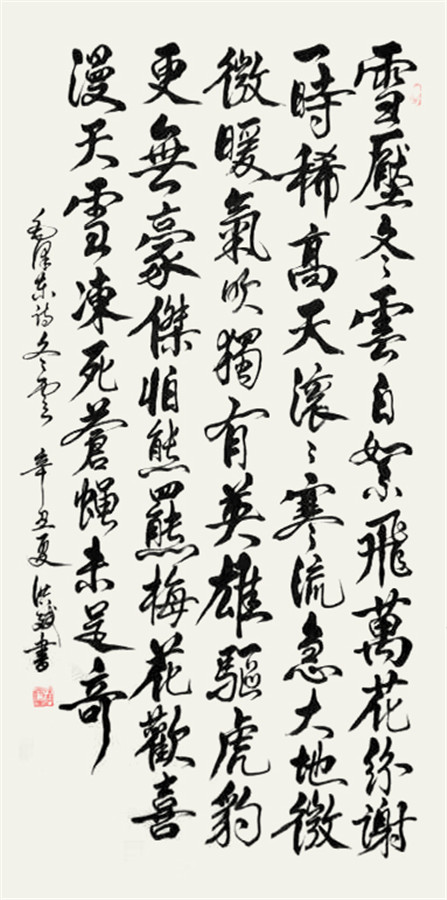 雪壓冬雲白絮飛萬花紛謝
一時稀高天滚〻寒流急大地微
微暖氣吹獨有英雄驅虎豹
更無豪傑怕熊羆梅花歡喜
漫天雪凍死蒼蝇未足奇
毛澤东詩冬雲 辛丑夏 洪書